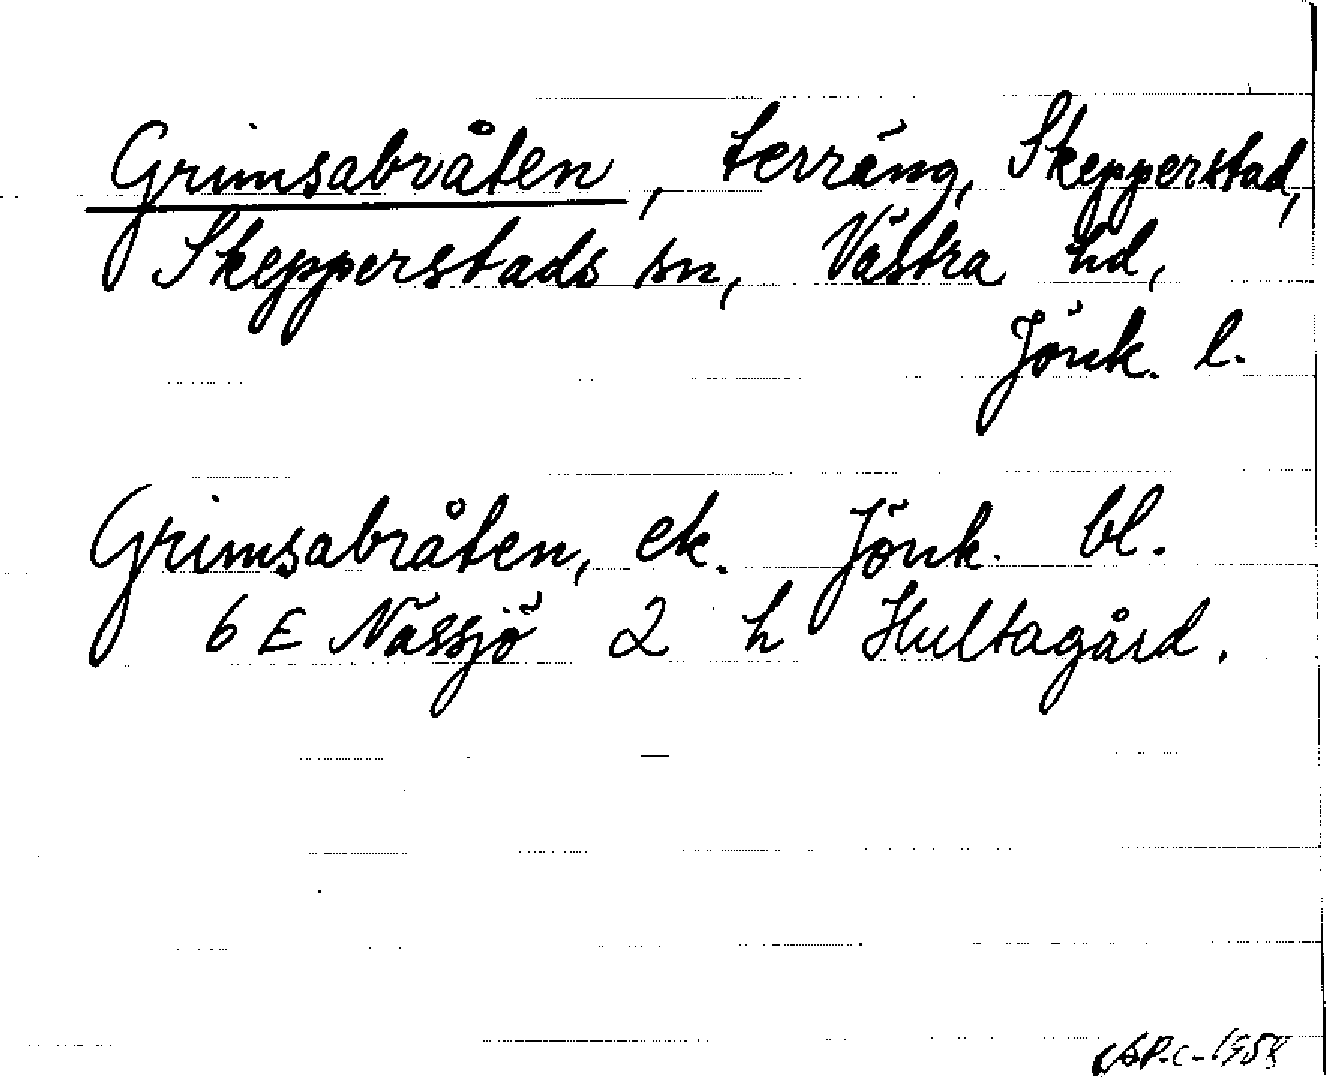 Grimsabråten, terräng, Skepperstad,
Skepperstads sn, Västra hd,
Jönk. l.
Grimsabråten, ek. Jönk. bl.
6 E Nässjö 2 h Hultagård.